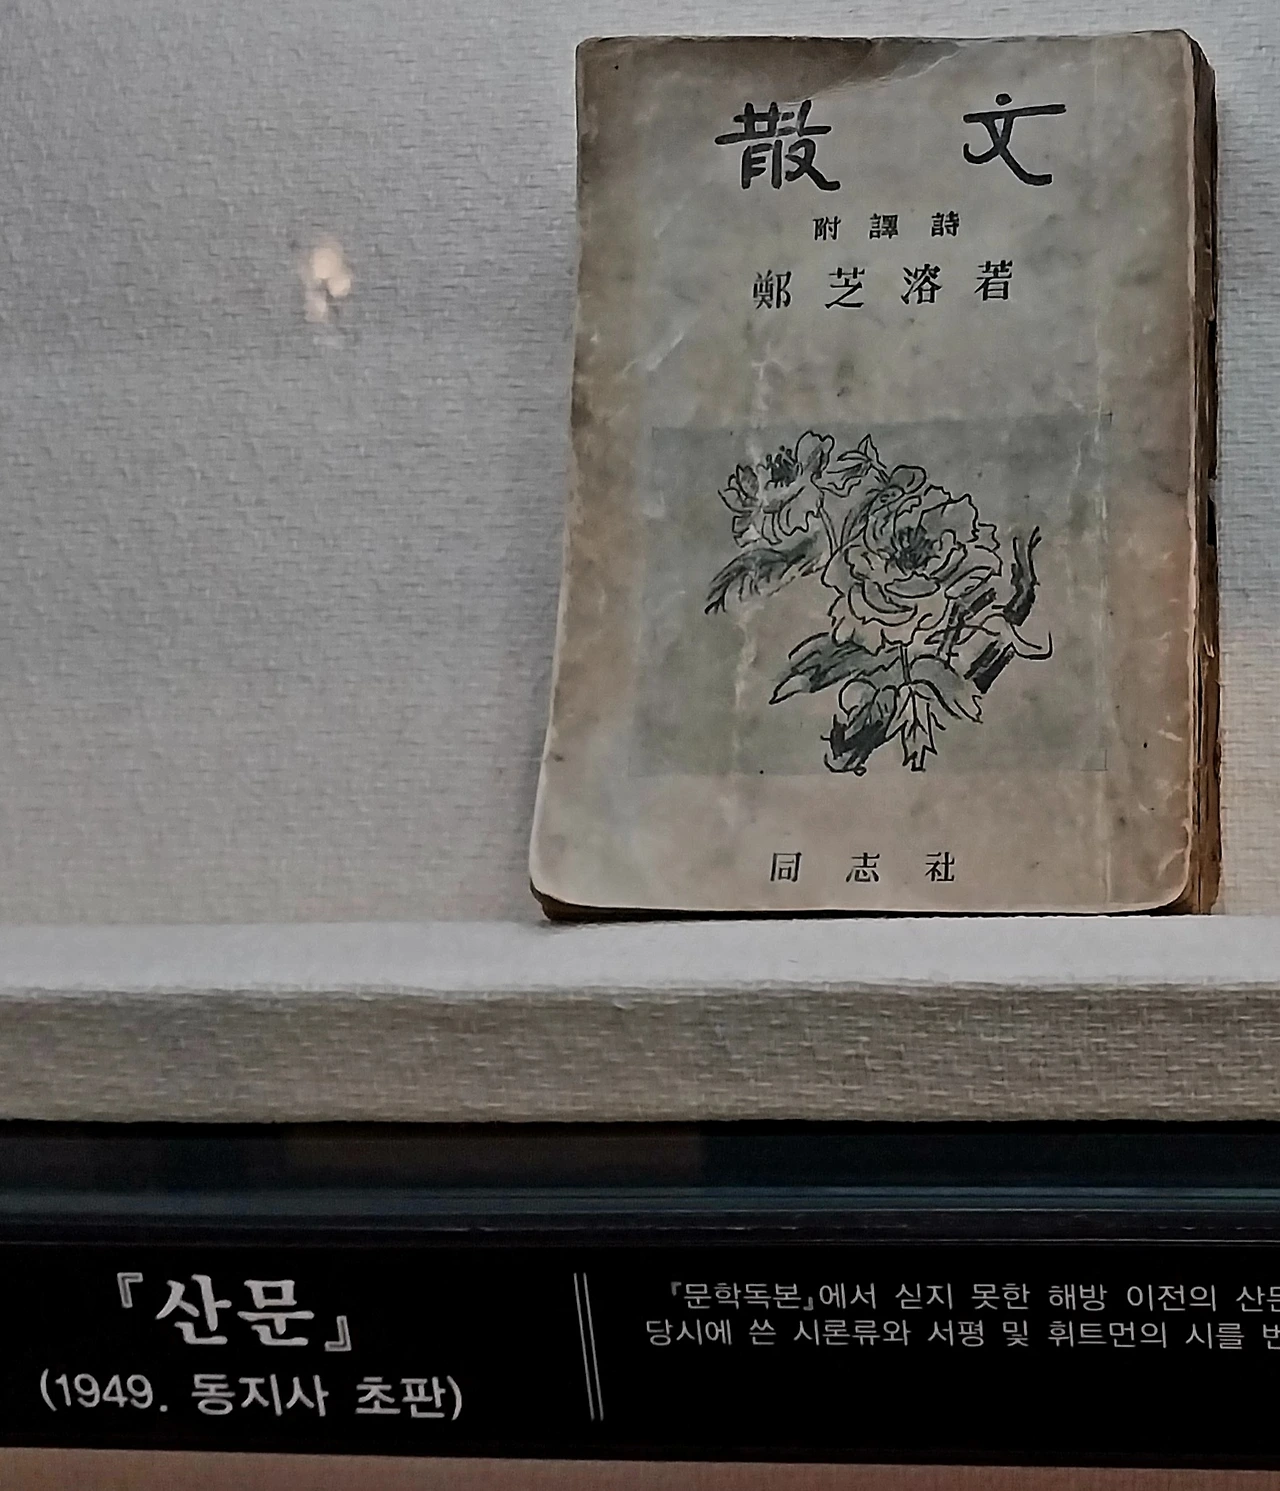 散 文
附 譯 詩
鄭 芝 溶 著
同 志 社
『산문』
(1949. 동지사 초판)
『문학독본』에서 싣지 못한 해방 이전의
당시에 쓴 시론류와 서평 및 휘트먼의 시를